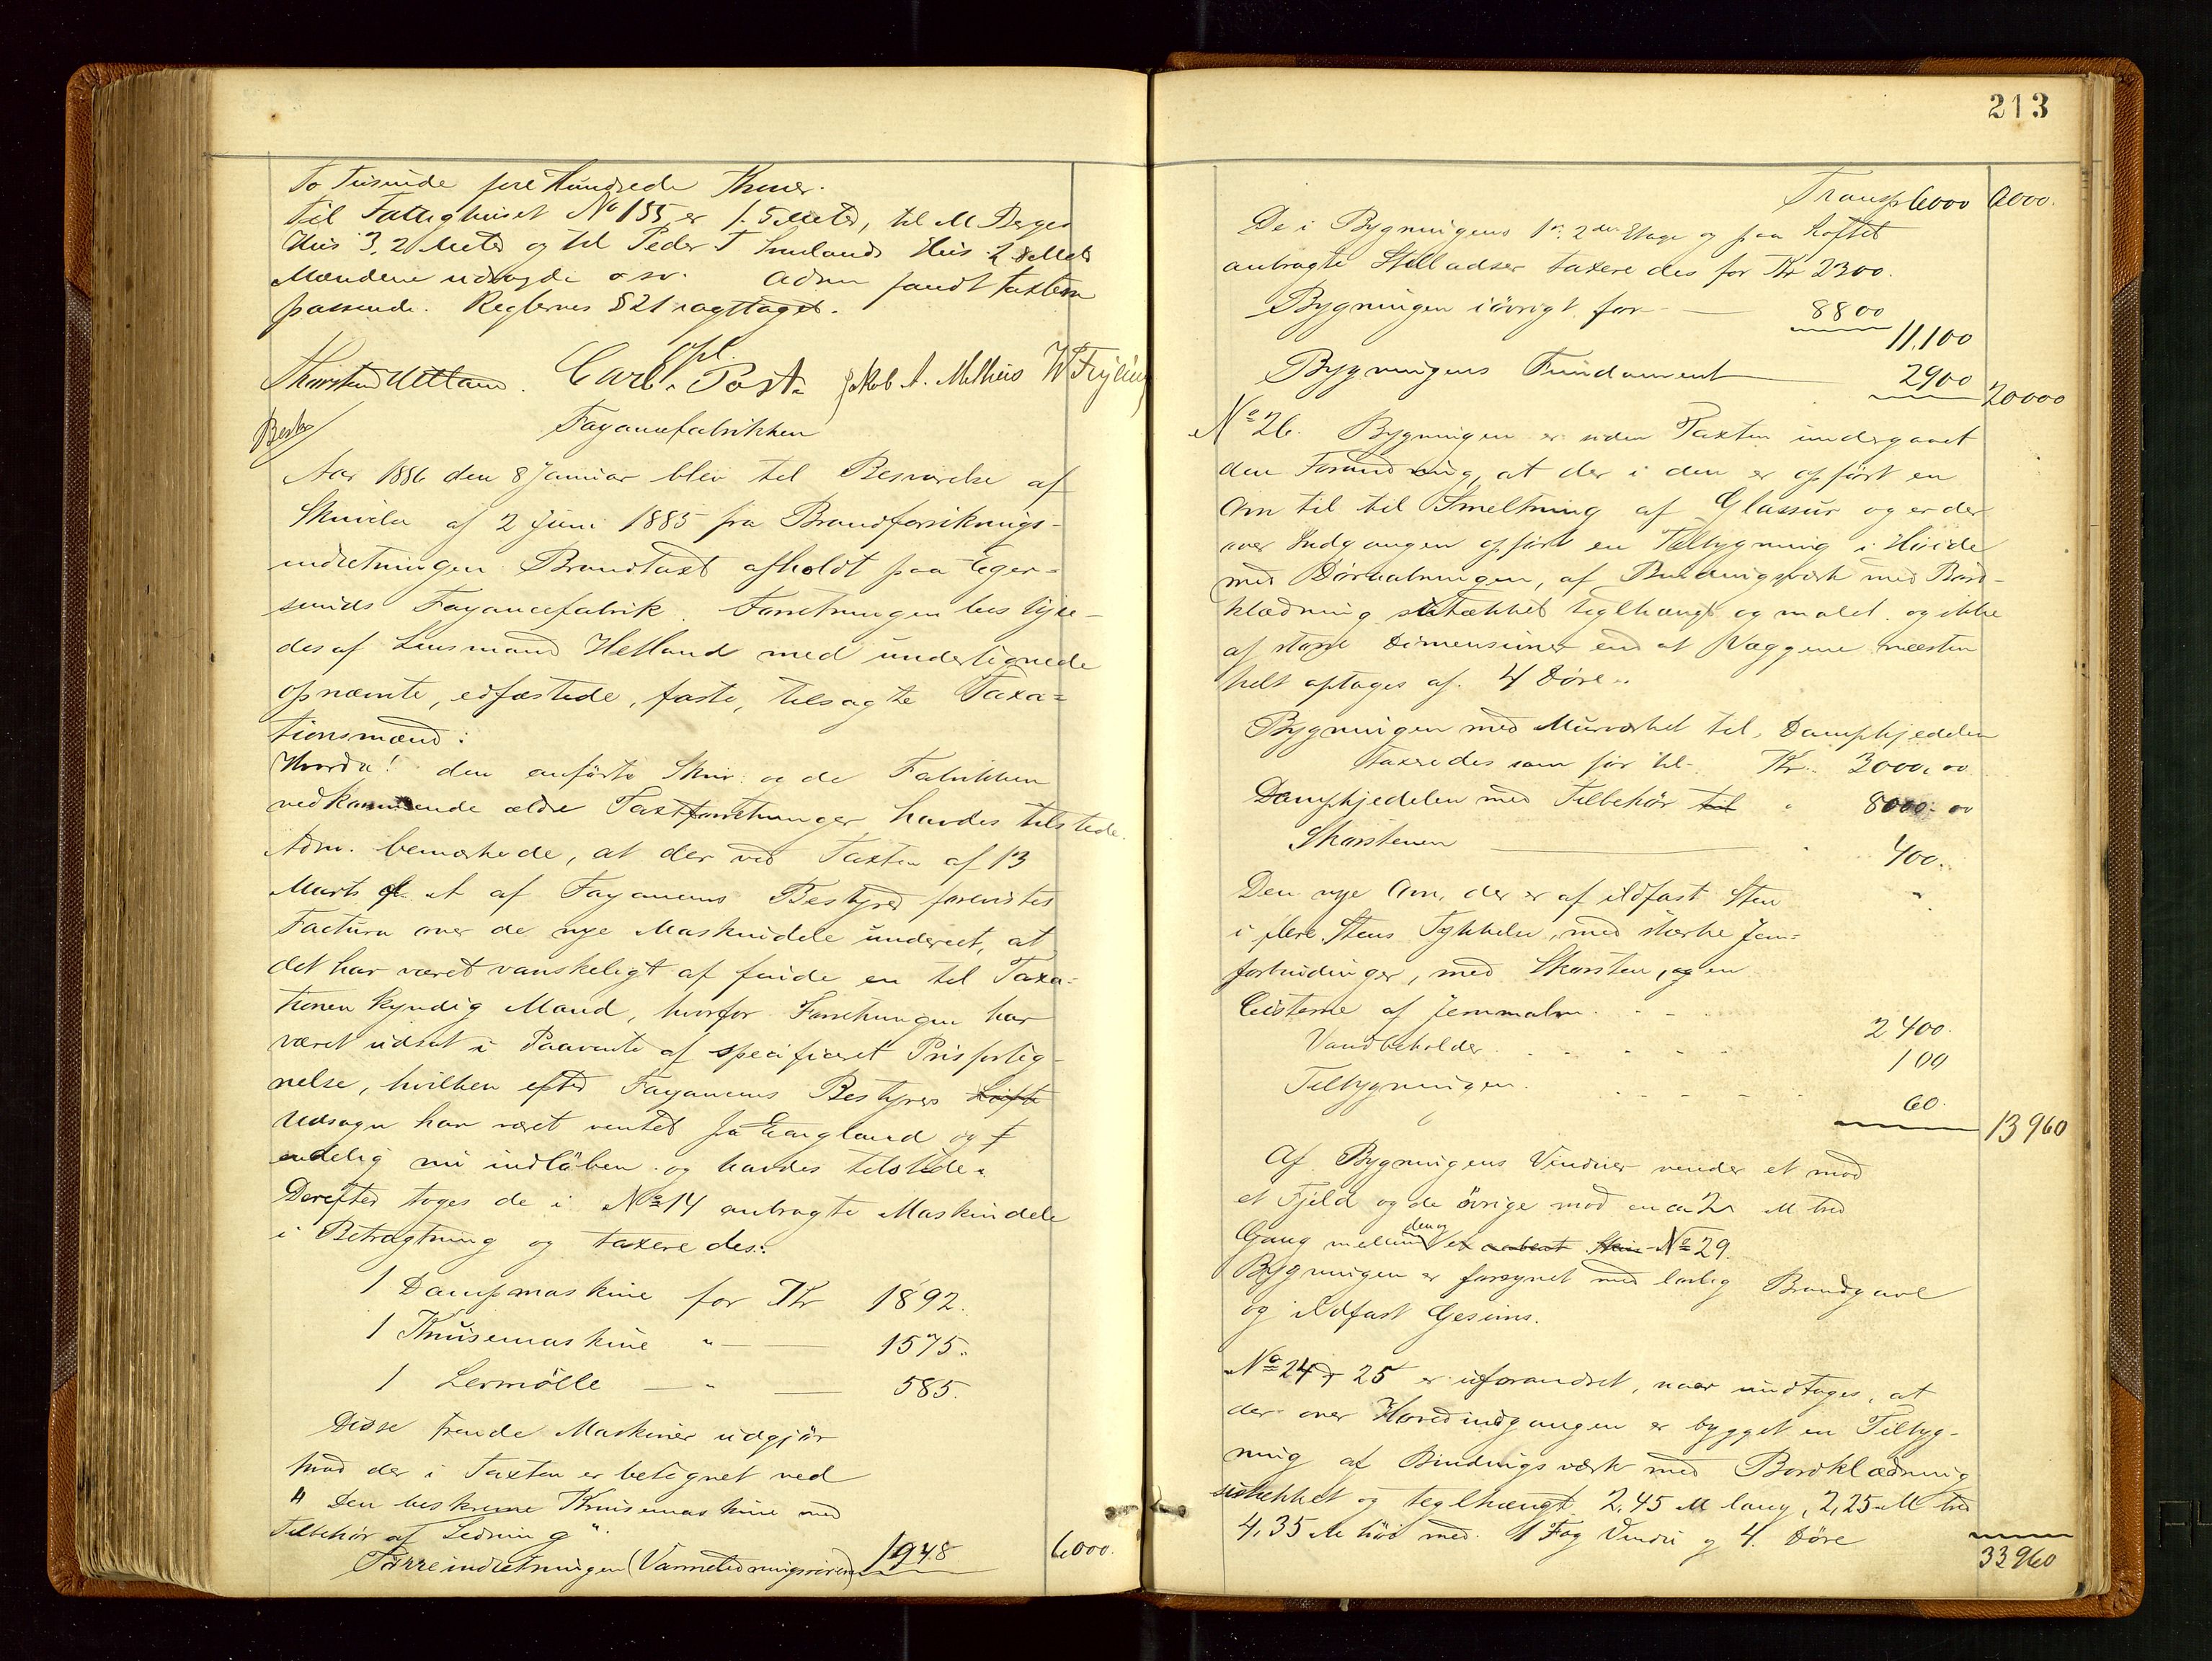 to Tusinde fire Hundrede Kroner.
Til Fattighuset No 155 er 1.5 Meter, til M Berges
Hus 3,2 Meter og til Peder T Hus 2,8 Meter
Mændene udsagde o sv. Adm fandt taxten
passende. Reglernes §21 iagttaget.
opl.
Thorsten Helland. Carl. Post. Jakob A. Melhus W Feyling
Besk
Fayancefabrikken
Aar 1886 den 8 Januar blev til Besvarelse af
Skrivelse af 2 Juni 1885 fra Brandforsikrings-
indretningen Brandtaxt afholdt paa Eger-
sunds Fayancefabrik. Forretningen bestyre-
des af Lensmand Helland med undertegnede
opnævnte, edfæstede, faste, tilsagte Taxa-
tionsmænd:
Hvorda! den anførte Skriv. og de Fabrikken
vedkommende ældre Taxtforretninger havdes tilstede.
Adm. bemærkede, at der ved Taxten af 13
Marts f. A af Fayancens Bestyrer forevistes
Factura over de nye Maskindele undereet, at
det har været vanskeligt at finde en til Taxa-
tionen kyndig Mand, hvorfor Forretningen har
været udsat i Paavente af specificeret Prisforteg-
nelse, hvilken efter Fayancens Bestyrers
Udsagn har været ventet fra England og
endelig nu indløben og havdes tilstede.
Derefter toges de i No 14 anbragte Maskindele
i Betragtning og taxeredes:
1 Dampmaskine for Kr 1892.
1 Knusemaskine " — 1575.
1 Lermølle — " — 585.
Disse trende Maskiner udgjør
hvad der i Taxten er betegnet ved
" Den beskrevne Knusemaskine med
Tilbehør af Ledning".
Tørreindretningen (Varmeledningsrørene) 1948 6000.
213
Transp 6000 6000.
De i Bygningens 1ste 2den Etage og paa Loftet
anbragte Stilladser taxeredes for Kr 2300.
Bygningen iøvrigt for — 8800
11,100
Bygningens Fundament — 2900 20000
No 26. Bygningen er siden Taxten undergaaet
den Forandring, at der i den er opført en
Ovn til til Smeltning af Glassur og er der
over Indgangen opført en Tilbygning i Høide
med Døraabningen, af Bindingsværk med Bord-
klædning sutækket teglhængt og malet og ikke
af større Dimensioner end at Væggene næsten
helt optages af 4 Døre.
Bygningen med Murværket til Dampkjedelen
taxeredes som før til Kr. 3000,00
Dampkjedelen med Tilbehør til " 8000.00
Skorstenen — 400.
Den nye Ovn, der er af ildfast Sten
i flere Stens Tykkelse, med stærke Jern-
forbindinger, med Skorsten, og en
Cisterne af Jernmalm. 2400.
Vandbeholder 100
Tilbygningen. 60. 13960
Af Bygningens Vinduer vender et mod
et Fjeld og de øvrige mod en ca 2 M bred
Gang mellem den og No 29.
Bygningen er forsynet med lovlig Brandgavl
og ildfast Gesims.
No 24 & 25 er uforandret, naar undtages, at
der over Hovedindgangen er bygget en Tilbyg-
ning af Bindingsværk med Bordklædning
sutækket og teglhængt 2,45 M lang, 2,25 M bred
4,35 M høi med 1 Fag Vindu og 4. Døre
33960